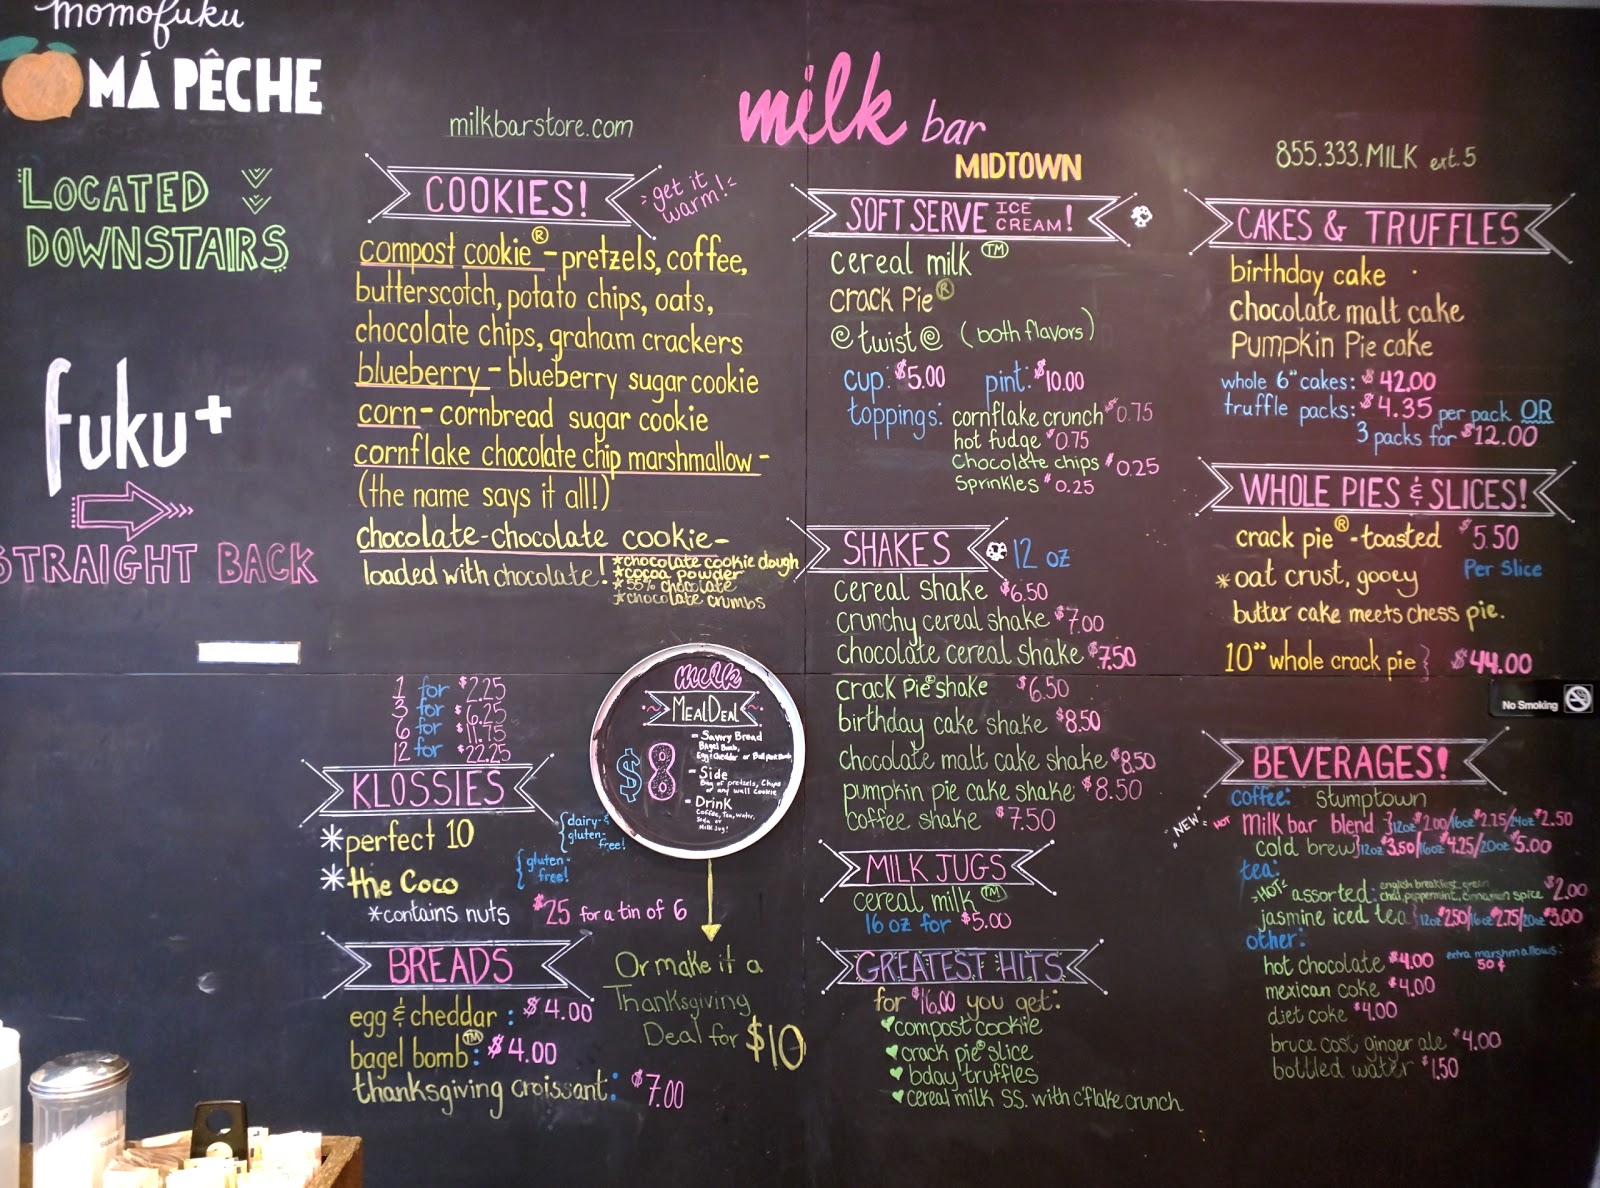 momofuku
MÁ PÊCHE
LOCATED
DOWNSTAIRS
fuku+
STRAIGHT BACK
milkbarstore.com
milk bar
MIDTOWN
855.333.MILK ext. 5
COOKIES!
get it
warm!
compost cookie® - pretzels, coffee,
butterscotch, potato chips, oats,
chocolate chips, graham crackers
blueberry - blueberry sugar cookie
corn - cornbread sugar cookie
cornflake chocolate chip marshmallow -
(the name says it all!)
chocolate-chocolate cookie -
loaded with chocolate!
*chocolate cookie dough
*cocoa powder
*55% chocolate
*chocolate crumbs
1 for $2.25
3 for $6.25
6 for $11.75
12 for $22.25
KLOSSIES
*perfect 10
{dairy- &
gluten-
free!}
*the Coco
{gluten-
free!
*contains nuts $25 for a tin of 6
BREADS
egg & cheddar: $4.00
bagel bomb™: $4.00
thanksgiving croissant: $7.00
milk
MEAL DEAL
$8
- Savory Bread
Bagel Bomb,
Egg & Cheddar or
- Side
Bag of pretzels, Chips
or any wall Cookie
- Drink
Coffee, Tea, Water,
Soda or
Milk Jug!
Or make it a
Thanksgiving
Deal for $10
SOFT SERVE ICE CREAM!
cereal milk™
crack Pie®
twist (both flavors)
cup: $5.00 pint: $10.00
toppings: cornflake crunch $0.75
hot fudge $0.75
Chocolate chips $0.25
Sprinkles $0.25
SHAKES 12 oz
cereal shake $6.50
crunchy cereal shake $7.00
chocolate cereal shake $7.50
crack Pie® shake $6.50
birthday cake shake $8.50
chocolate malt cake shake $8.50
pumpkin pie cake shake $8.50
coffee shake $7.50
MILK JUGS
cereal milk™
16 oz for $5.00
GREATEST HITS
for $16.00 you get:
compost cookie
crack pie® slice
bday truffles
cereal milk SS. with c'flake crunch
CAKES & TRUFFLES
birthday cake
chocolate malt cake
Pumpkin Pie cake
whole 6" cakes: $42.00
truffle packs: $4.35 per pack OR
3 packs for $12.00
WHOLE PIES & SLICES!
crack pie® - toasted $5.50
*oat crust, gooey Per slice
butter cake meets chess pie.
10" whole crack pie} $44.00
No Smoking
BEVERAGES!
coffee: stumptown
NEW HOT milk bar blend }12oz $2.00/16oz $2.25/24oz $2.50
cold brew}12oz $3.50/16oz $4.25/20oz $5.00
tea:
HOT assorted: english breakfast, green
chai, peppermint, cinnamon spice $2.00
jasmine iced tea{12oz $2.50/16oz $2.75/20oz $3.00
other:
hot chocolate $4.00 extra marshmallows:
50¢
mexican coke $4.00
diet coke $4.00
bruce cost ginger ale $4.00
bottled water $1.50